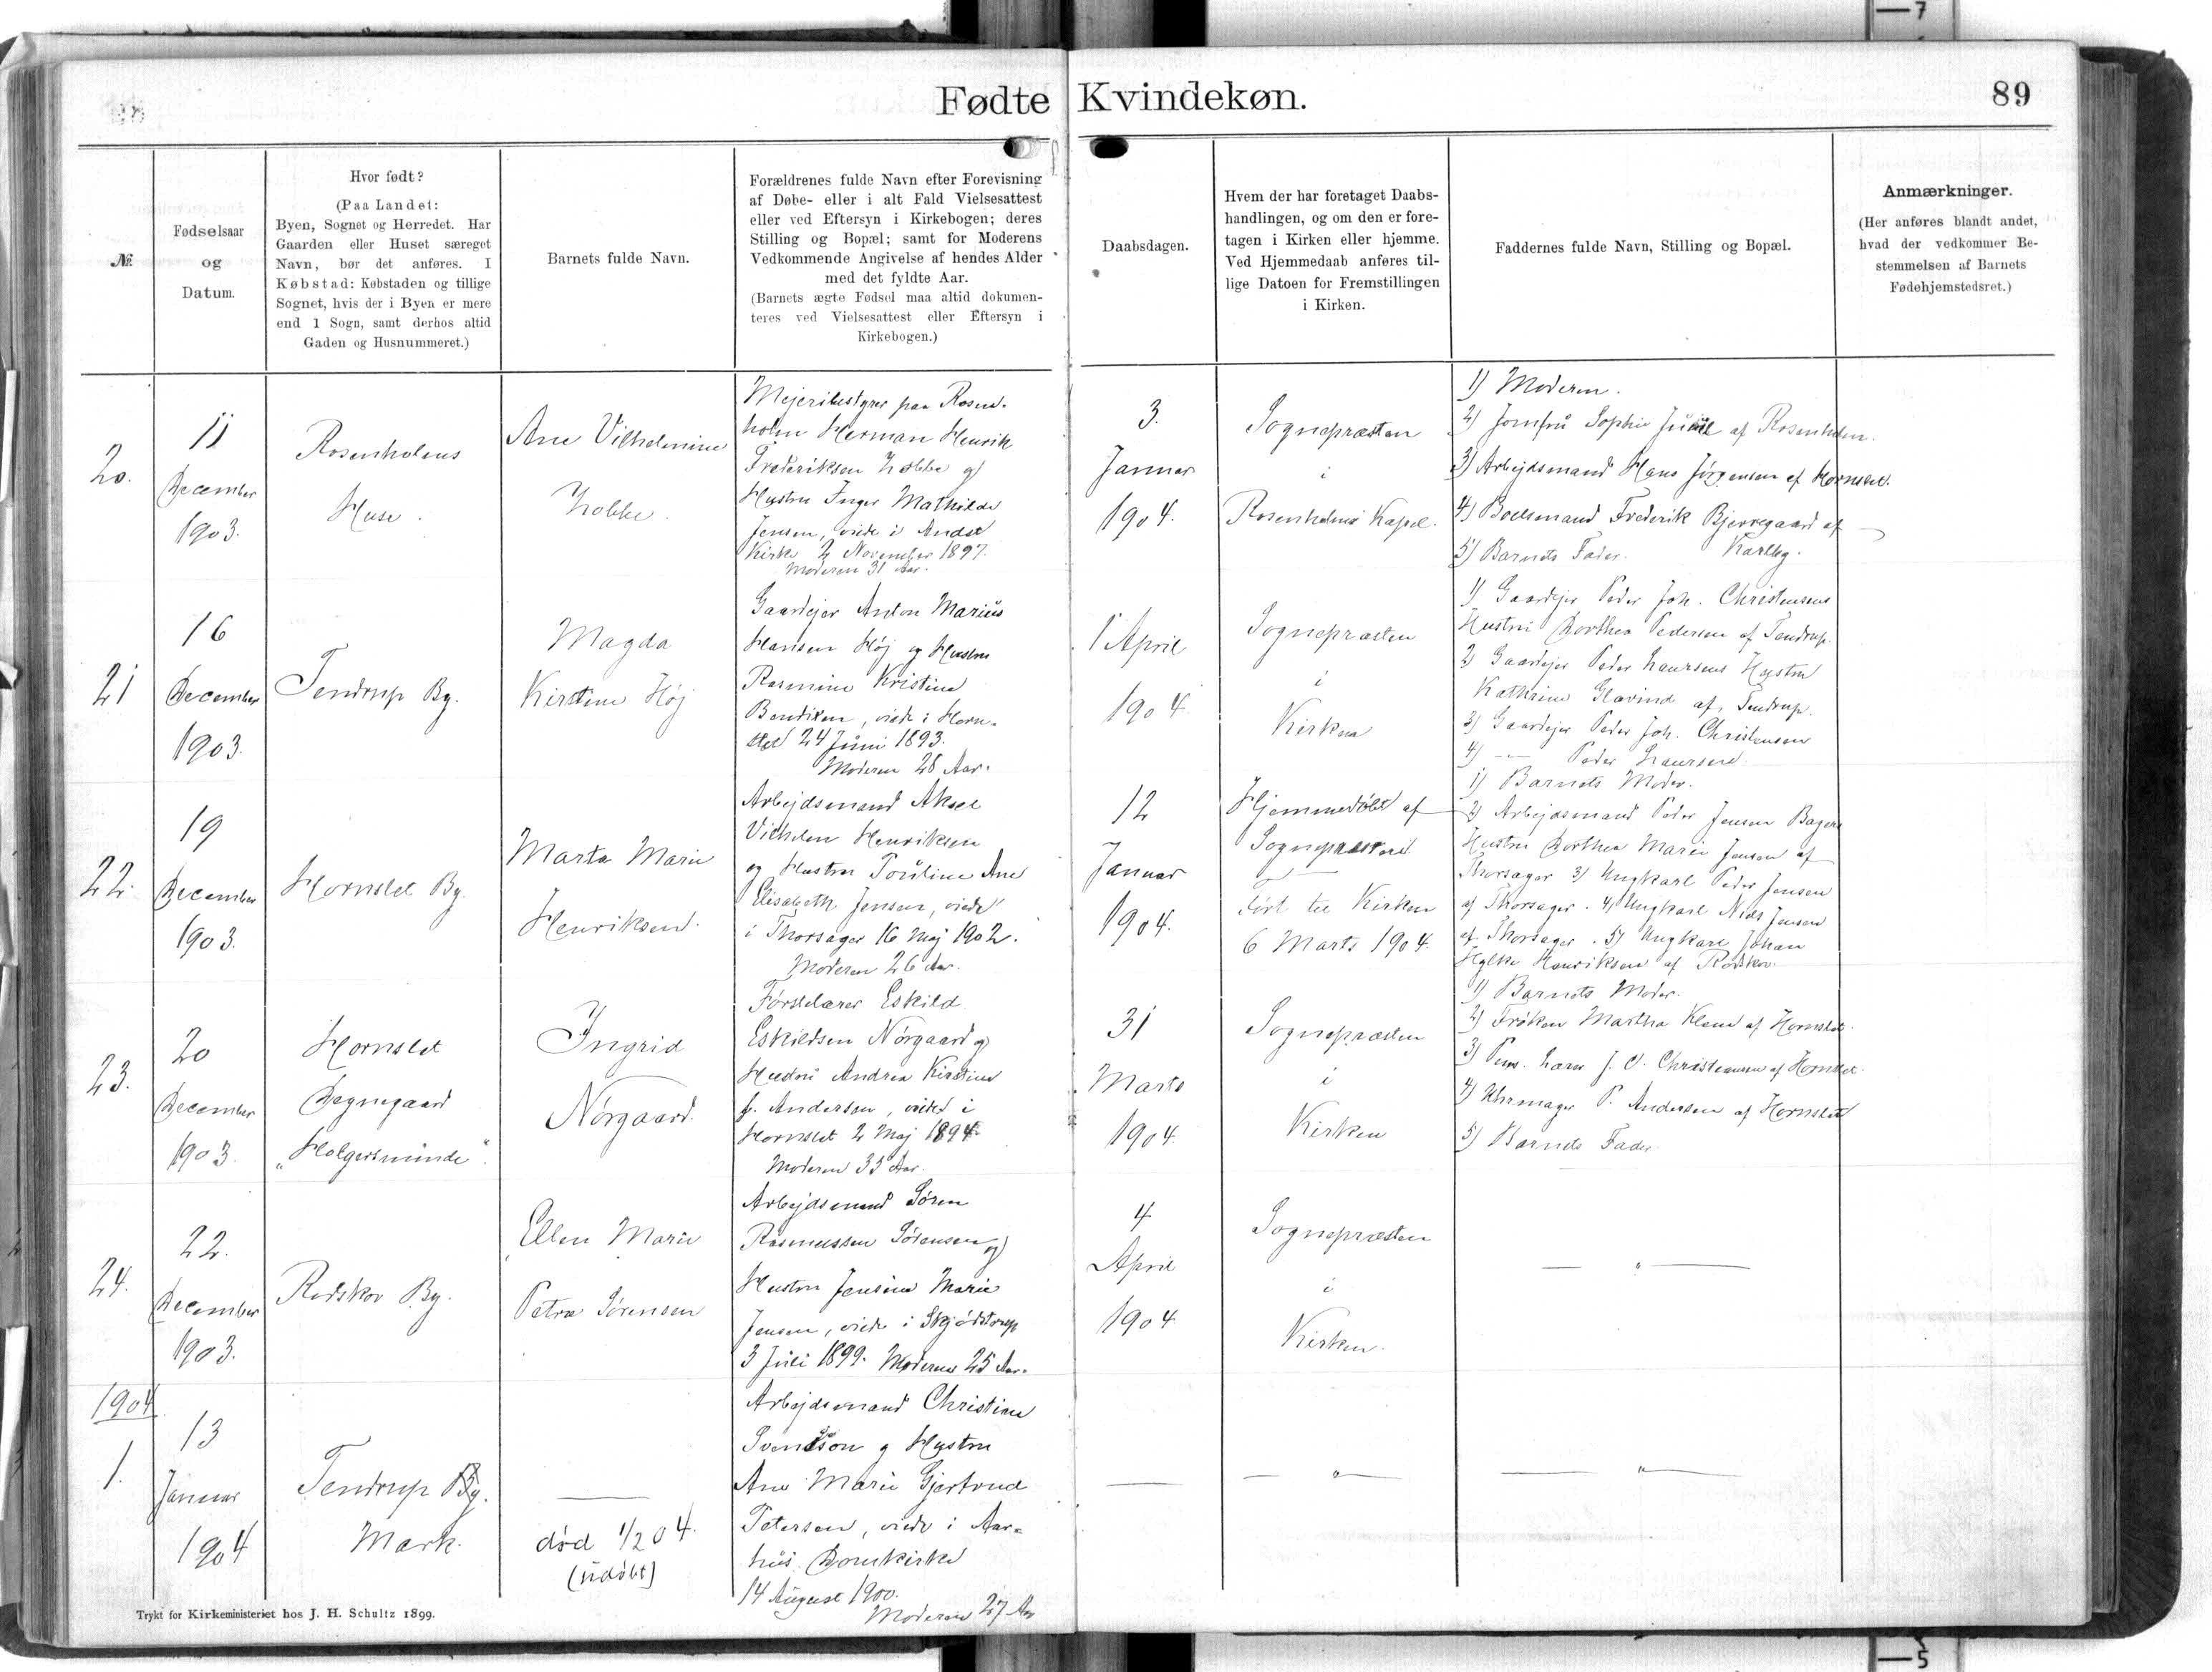 Fødte Kvindekøn.
89
№
Fødselsaar
og
Datum.
Hvor født?
(Paa Landet:
Byen, Sognet og Herredet. Har
Gaarden eller Huset særeget
Navn, bør det anføres. I
Købstad: Købstaden og tillige
Sognet, hvis der i Byen er mere
end 1 Sogn, samt derhos altid
Gaden og Husnummeret.)
Barnets fulde Navn.
Forældrenes fulde Navn efter Forevisning
af Døbe- eller i alt Fald Vielsesattest
eller ved Eftersyn i Kirkebogen; deres
Stilling og Bopæl; samt for Moderens
Vedkommende Angivelse af hendes Alder
med det fyldte Aar.
(Barnets ægte Fødsel maa altid dokumen-
teres ved Vielsesattest eller Eftersyn i
Kirkebogen.)
Daabsdagen.
Hvem der har foretaget Daabs-
handlingen, og om den er fore-
tagen i Kirken eller hjemme.
Ved Hjemmedaab anføres til-
lige Datoen for Fremstillingen
i Kirken.
Faddernes fulde Navn, Stilling og Bopæl.
Anmærkninger.
(Her anføres blandt andet,
hvad der vedkommer Be-
stemmelsen af Barnets
Fødehjemstedsret.)
20.
11
December
1903.
Rosenholms
Huse.
Ane Vilhelmine
Mejeribestyrer paa Rosen-
holm Herman Henrik
Frederiksen og
Hustru Inger Mathilde
Jensen, viede i Andst
Kirke 2 November 1897.
Moderen 31 Aar.
3.
Januar
1904.
Sognepræsten
i
Rosenholms Kapel.
1) Moderen.
2) Jomfru Sophie Juul af Rosenholm.
3) Arbejdsmand Hans Jørgensen af Hornslet.
4) Boelsmand Frederik Bjerregaard af
Karlby.
5) Barnets Fader.
21
16
December
1903.
Tendrup By.
Magda
Kirstine Høj
Gaardejer Anton Marius
Hansen Høj og Hustru
Rasmine Kristine
Bendixen, viede i Horn-
slet 24 Juni 1893.
Moderen 28 Aar.
1 April
1904.
Sognepræsten
i
Kirken
1) Gaardejer Peder Joh. Christensens
Hustru Dorthea Pedersen af Tendrup.
2) Gaardejer Peder Laursens Hustru
Kathrine Glavind af Tendrup.
3) Gaardejer Peder Joh. Christensen
4) — Peder Laursen
22.
19
December
1903.
Hornslet By.
Marta Marie
Henriksen.
Arbejdsmand Aksel
Vilhelm Henriksen
og Hustru Pouline Ane
Elisabeth Jensen, viede
i Thorsager 16 Maj 1902.
Moderen 26 Aar.
12
Januar
1904.
Hjemmedøbt af
Sognepræsten.
Ført til Kirken
6 Marts 1904.
1) Barnets Moder.
2) Arbejdsmand Peder Jensen
Hustru Dorthea Marie Jensen af
Thorsager 3) Ungkarl Peder Jensen
af Thorsager. 4) Ungkarl Niels Jensen
af Thorsager. 5) Ungkarl Johan
Henriksen af Rodskov.
23.
20
December
1903.
Hornslet
Degnegaard
„Holgersminde“.
Ingrid
Nørgaard.
Førstelærer Eskild
Eskildsen Nørgaard og
Hustru Andrea Kirstine
f. Andersen, viedes i
Hornslet 2 Maj 1894
Moderen 35 Aar.
31
Marts
1904.
Sognepræsten
i
Kirken
1) Barnets Moder.
2) Frøken Martha af Hornslet.
3) Pens. Lærer J. O. Christensen af Hornslet.
4) Uhrmager P. Andersen af Hornslet
5) Barnets Fader.
24.
22.
December
1903.
Rodskov By.
Ellen Marie
Petra Sørensen
Arbejdsmand Søren
Rasmussen Sørensen og
Hustru Jensine Marie
Jensen, viede i Skjødstrup
3 Juli 1899. Moderen 25 Aar.
4
April
1904
Sognepræsten
i
Kirken.
— „ —
1904
1.
13
Januar
1904
Tendrup By.
Mark.
—
død 1/2 04.
(udøbt)
Arbejdsmand Christian
Svendson og Hustru
Ane Marie Gjertrud
Petersen, viede i Aar-
hus Domkirke
14 August 1900.
Moderen 27 Aar
—
— „ —
— „ —
Trykt for Kirkeministeriet hos J. H. Schultz 1899.
7
5